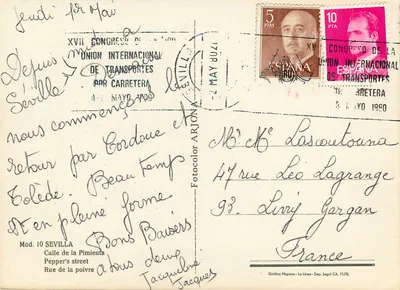 Jeudi 1er Mai
Depuis
Séville
nous commençons le
retour par Cordoue et
Tolède. Beau temps
et en pleine forme
Bons Baisers
a tous deux
Jacqueline
Jacques
Mod. 10 SEVILLA
Calle de la Pimienta
Pepper's street
Rue de la poivre
Fotocolor ARJONA
XVII CONGRESO DE LA
UNION INTERNACIONAL
DE TRANSPORTES
POR CARRETERA
MAYO 1980
SEVILLA
2 MAY 80
5
PESETAS
ESPAÑA
10
PTA
ESPAÑA
XVII CONGRESO DE LA
UNION INTERNACIONAL
DE TRANSPORTES
CARRETERA
MAYO 1980
Mr Me Lascoutouna
47 rue Léo Lagrange
93. Livry Gargan
France